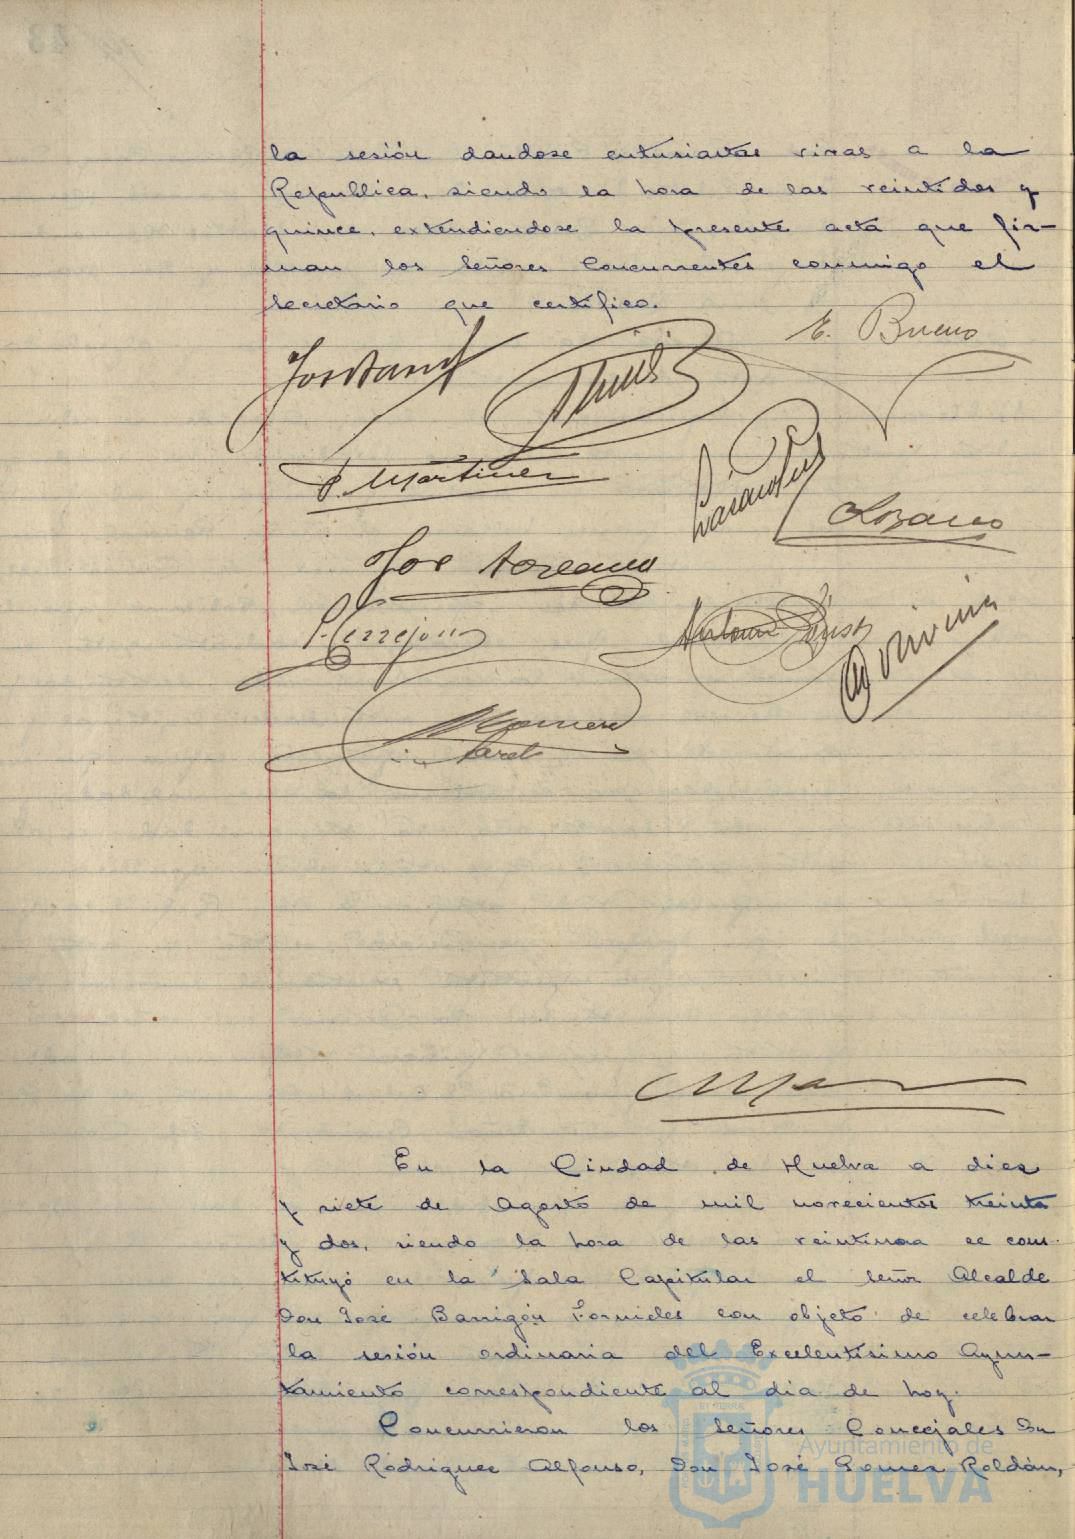 la sesión dandose entusiastas vivas a la
Republica, siendo la hora de las veintidos y
quince, extendiendose la presente acta que fir-
man los Señores Concurrentes conmigo el
Secretario que certifico.
E. Bueno
P. Martinez
Lozano
José
P. Cerrejon
Antonio
En la Ciudad de Huelva a diez
y siete de Agosto de mil novecientos treinta
y dos, siendo la hora de las veintiuna se cons-
tituyó en la Sala Capitular el señor Alcalde
Don José Barrigón Fornieles con objeto de celebrar
la sesión ordinaria del Excelentísimo Ayun-
tamiento correspondiente al dia de hoy.
Concurrieron los Señores Concejales Don
José Rodriguez Alfonso, Don José Gomez Roldán,
Ayuntamiento de
HUELVA